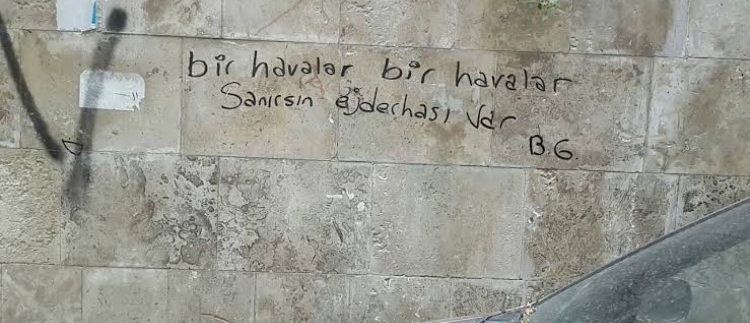 bir havalar bir havalar
Sanırsın ejderhası var
B.G.